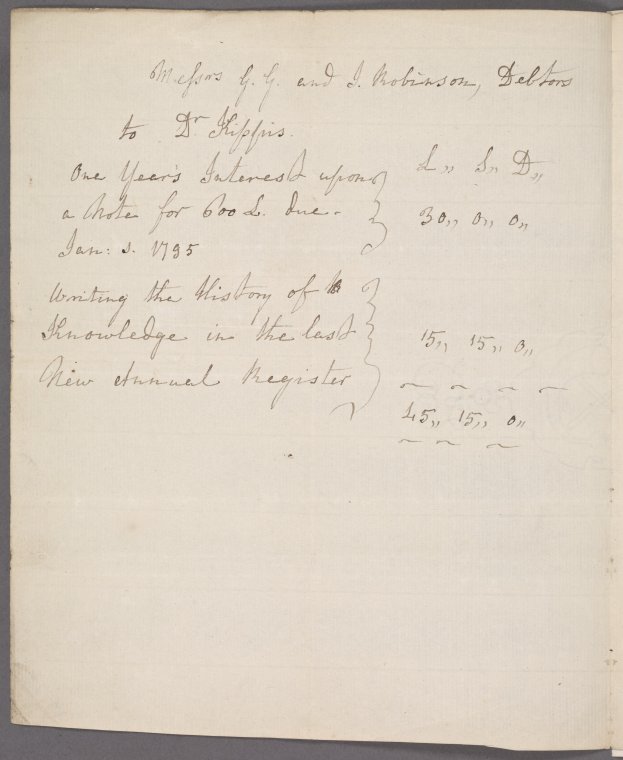 Messrs G. G. and J. Robinson, Debtors
to Dr. Kippis.
One Year's Interest upon £,, S,, D,,
a Note for 600 £. due 30,, 0,, 0,,
Jan: 1. 1795
Writing the History of
Knowledge in the last 15,, 15,, 0,,
New Annual Register
45,, 15,, 0,,